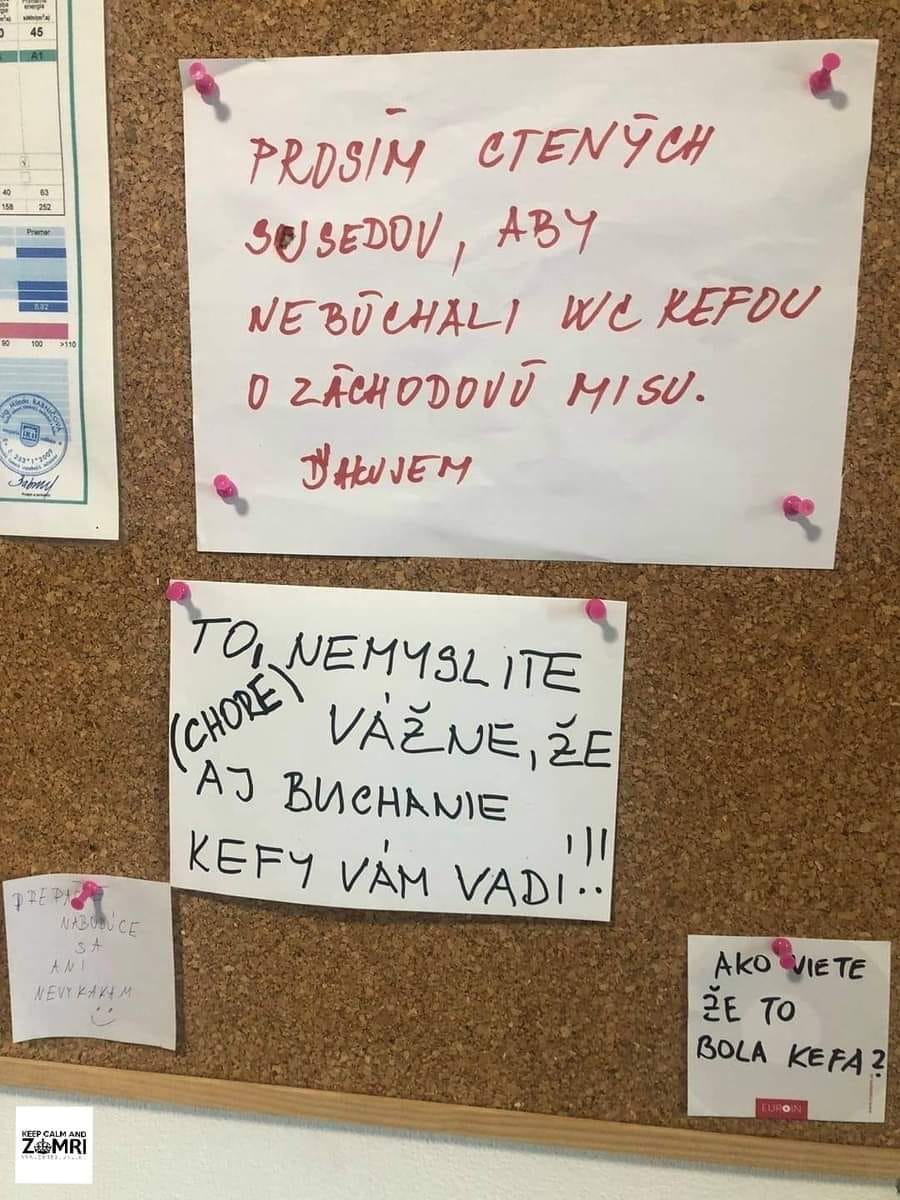 45
A1
40 63
158 252
Premer
90 100 >110
PROSÍM CTENÝCH
SUSEDOV, ABY
NEBÚCHALI WC KEFOU
O ZÁCHODOVÚ MISU.
ĎAKUJEM
TO, NEMYSLITE
(CHORE)
VÁŽNE, ŽE
AJ BUCHANIE
KEFY VÁM VADÍ!!!
PREPÁČTE
NABUDÚCE
SA
ANI
NEVYKAKAM
AKO VIETE
ŽE TO
BOLA KEFA?
EUROIN
KEEP CALM AND
ZOMRI